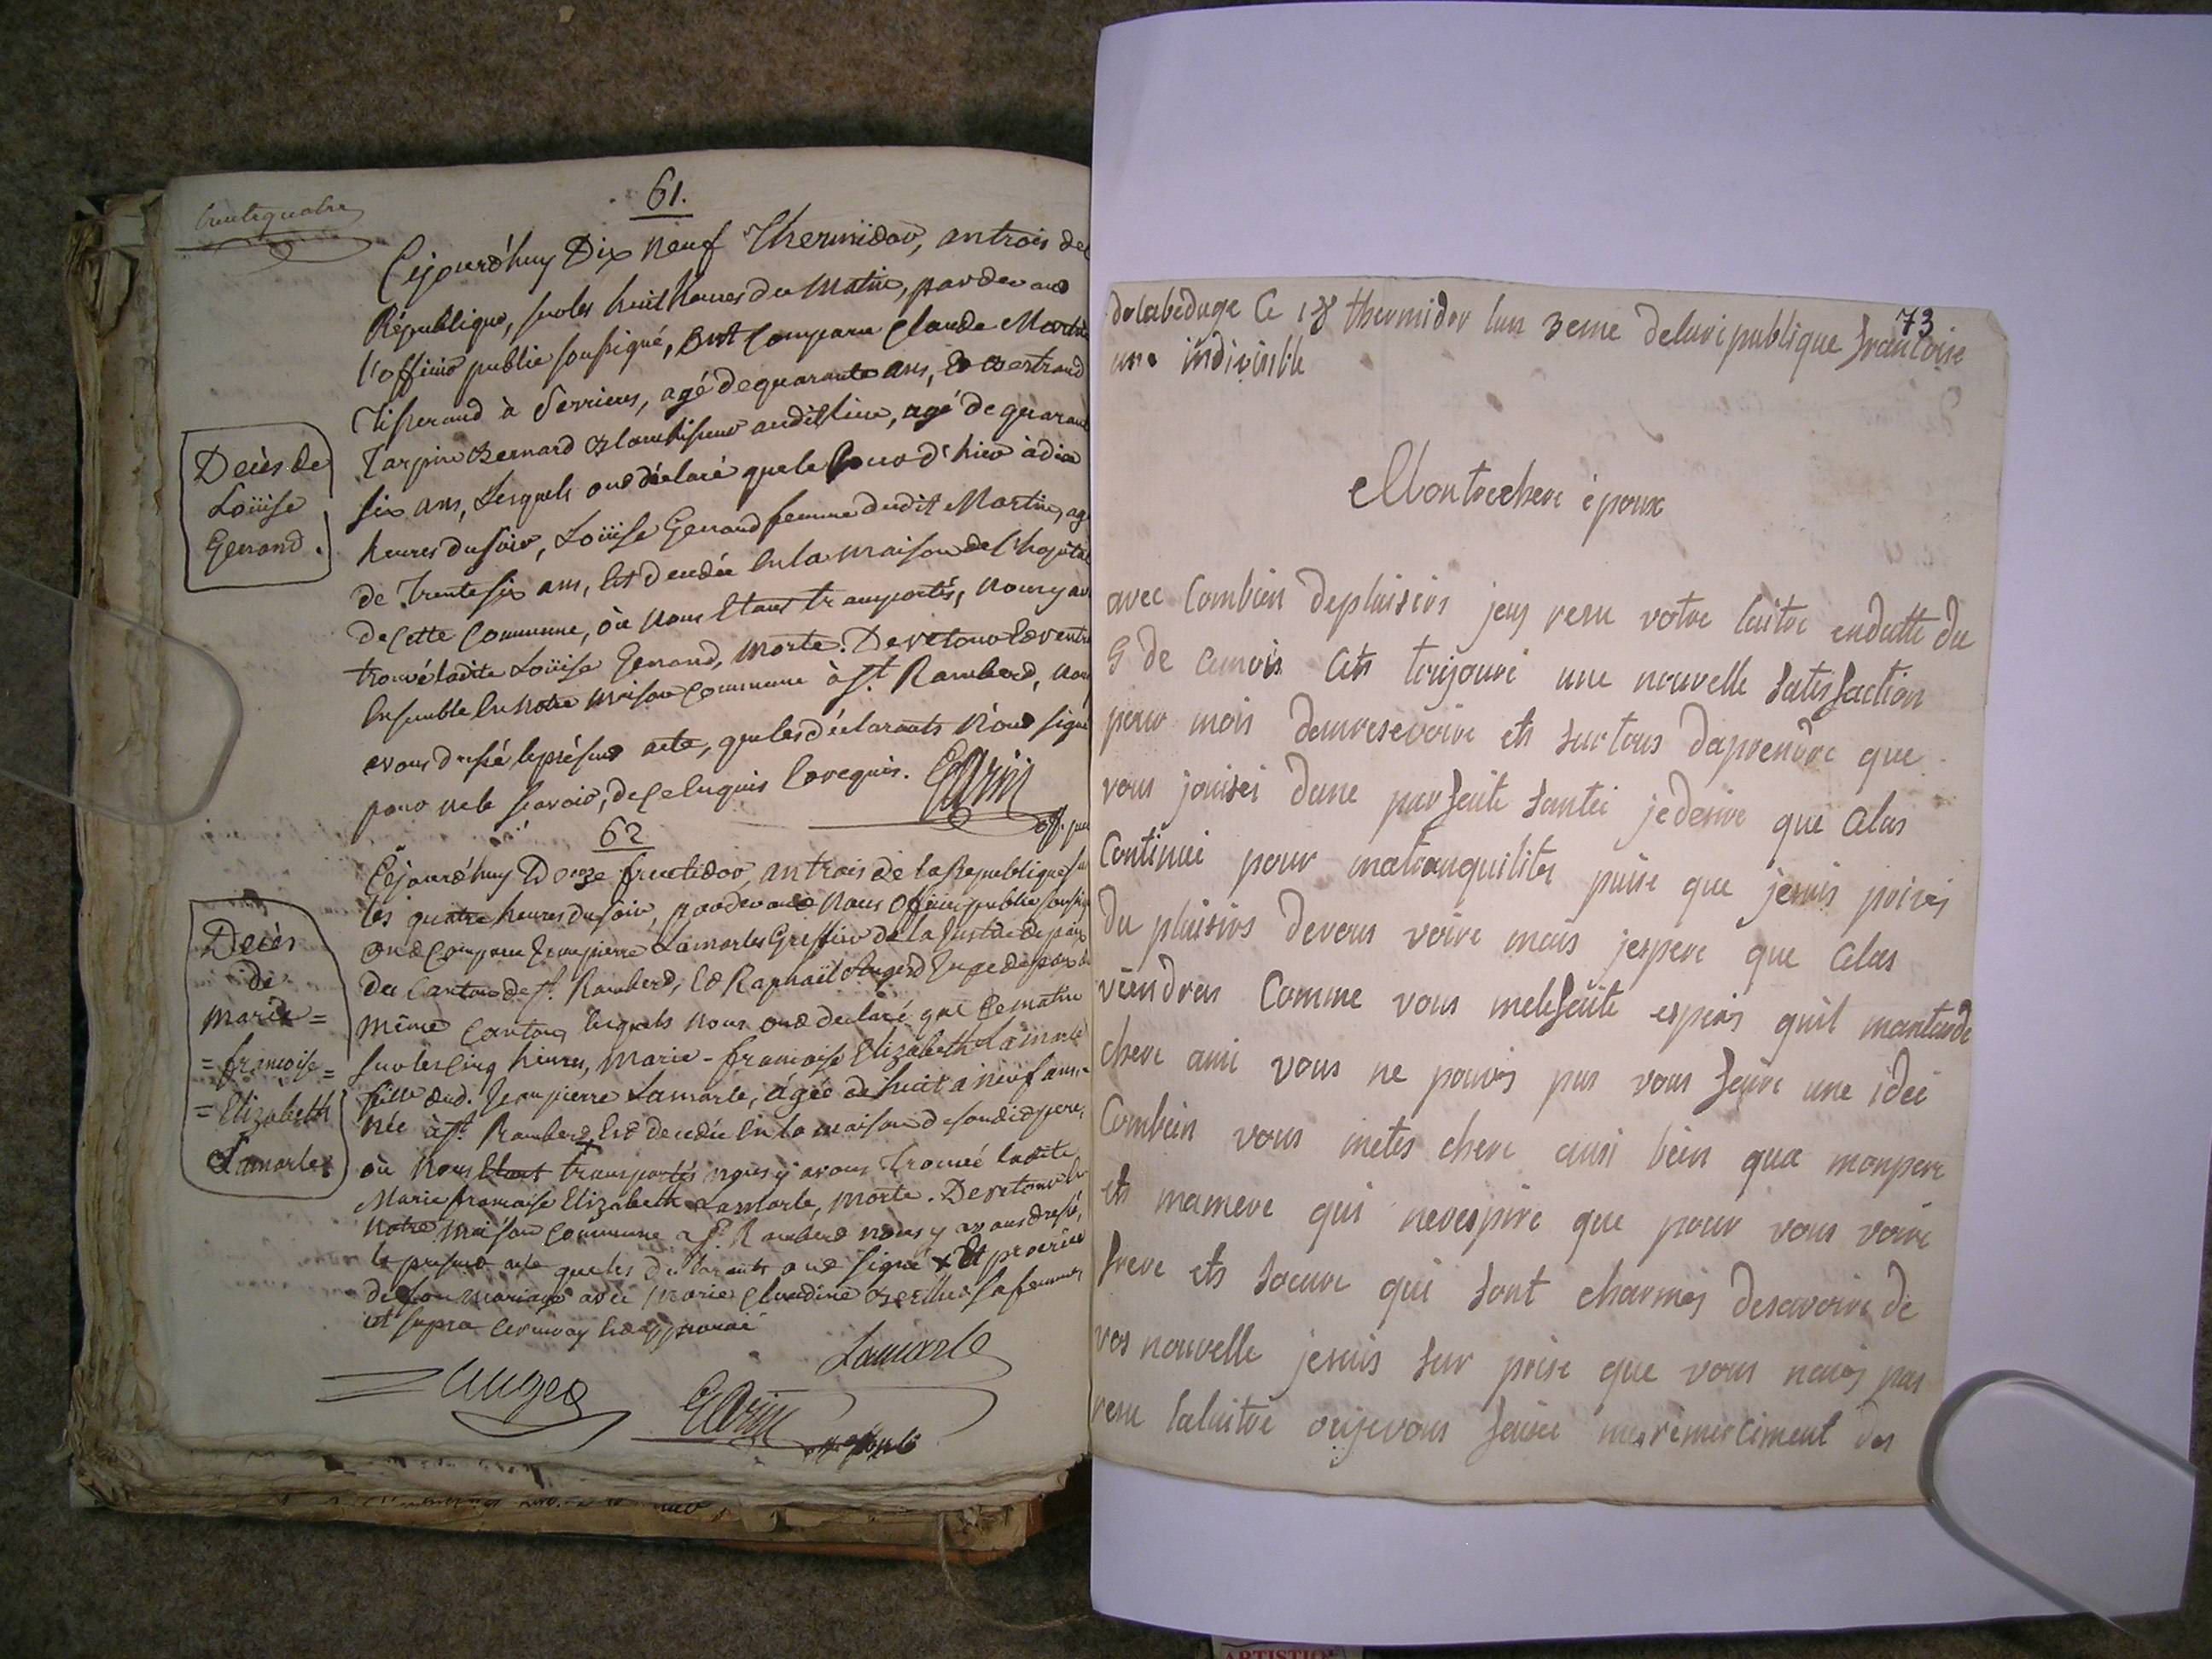 trentequatre
61.
Cejourd'huy Dix neuf Thermidor, an trois de
République, sur les huit heures du matin, par devant
l'officier public soussigné, ont comparu Claude Martin
Tisserand à Serrieres, agé de quarante ans, et Bertrand
Tarpin Bernard Blanchisseur audit lieu, agé de quarante
six ans, Lesquels ont déclaré que le jour d'hier à dix
heures du soir, Loüise Genand femme dudit Martin, ag
de Trente six ans, est decedée en la maison de l'hopital
de cette Commune, où nous étant transportés, nous y av
trouvé ladite Loüise Genand, morte. De retour
Ensemble en notre maison commune à St. Rambert, nou
avons dressé le présent acte, que les déclarants n'ont signé
pour ne le scavoir, de ce enquis et requis.
off. pu
Décès de
Loüise
Genand.
62
Cejourd'huy Douze fructidor, an trois de la Republique su
les quatre heures du soir, par devant Nous Officier public soussig
ont comparu Jean pierre Lamarle Greffier de la Justice de paix
du Canton de St. Rambert, et Raphaël Auger Juge de paix d
même Canton, lesquels nous ont declaré que ce matin
sur les cinq heures, Marie-francoise Elizabeth Lamarle
fille dud. Jean pierre Lamarle, âgée de huit a neuf ans
née à St. Rambert est decedée en la maison de sondit pere,
où nous étant transportés nous y avons trouvé ladite
Marie francoise Elizabeth Lamarle, morte. De retour en
notre maison commune a St. Rambert nous y avons dressé,
le present acte que les declarants ont signé + Et procréée
de son mariage avec Marie Claudine sa femme
ut supra approuvé
Décès
de
marie=
=françoise=
=Elizabeth
Lamarle
Lamarle
Auger
73
delabeduge Ce 18 thermidor lan 3eme delari publique francoise
une indivisible
Montrechere époux
avec Combien deplaisirs jeus resu votre laitre endatte du
9 de cemois Cets toujours une nouvelle satisfaction
pour mois danresevoire ets surtous daprendre que
vous jouisei dune parfaite santei jedesire que Celas
Continuei pour matranquilites puise que jesuis poires
du plaisirs devous voire mais jespere que Celas
viendras Comme vous melefaite espires quil mantarde
chere ami vous ne pouves pas vous faire une idei
Combein vous metes chere ausi bein qua monpere
ets mamere qui nerespire que pour vous voire
frere ets soeure qui sont charmes desavoire de
vos nouvelle jesuis sur prise que vous naies pas
resu lalaitre oujevous faisei mes remerciment des